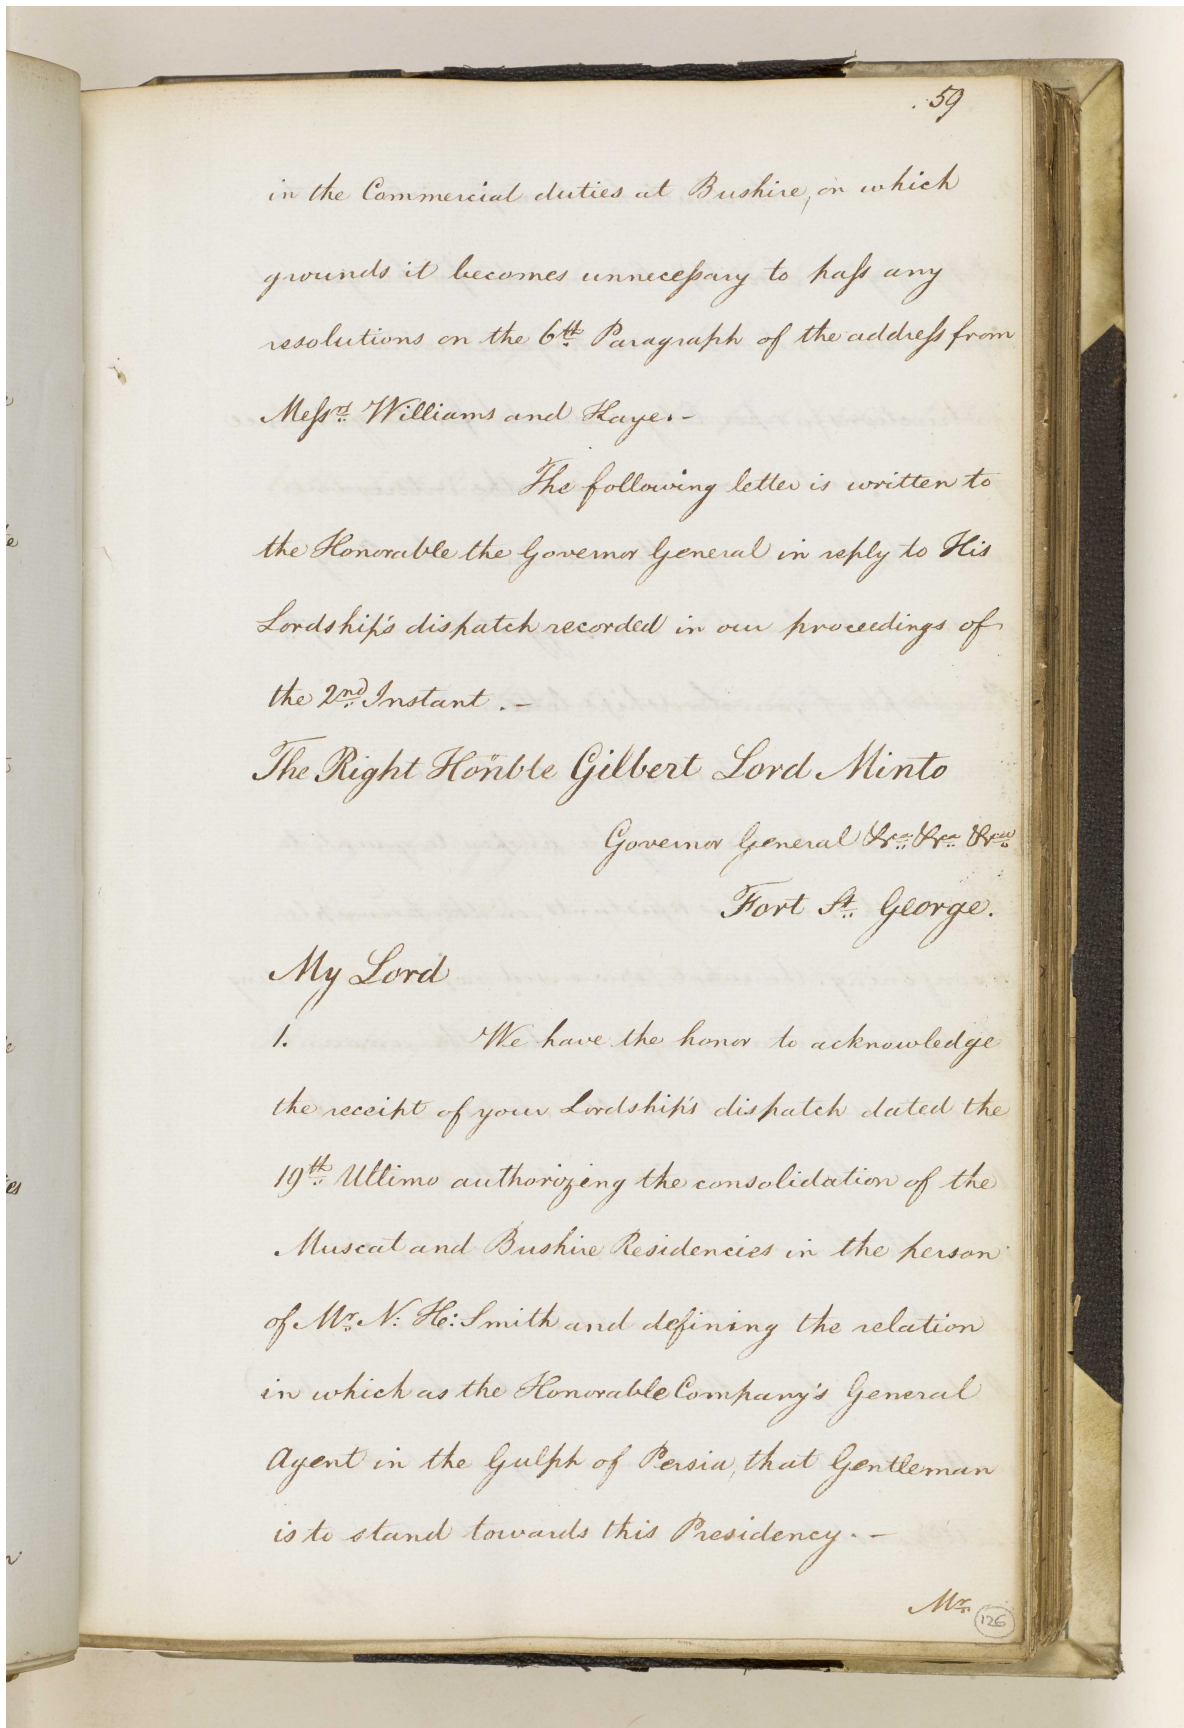 59
in the Commercial duties at Bushire, on which
grounds it becomes unnecessary to pass any
resolutions on the 6th Paragraph of the address from
Messrs Williams and Haye. -
The following letter is written to
the Honorable the Governor General in reply to His
Lordship's dispatch recorded in our proceedings of
the 2nd Instant. -
The Right Honble Gilbert Lord Minto
Governor General &ca &ca &ca
Fort St. George.
My Lord
1. We have the honor to acknowledge
the receipt of your Lordship's dispatch dated the
19th Ultimo authorizing the consolidation of the
Muscat and Bushire Residencies in the person
of Mr. N: H: Smith and defining the relation
in which as the Honorable Company's General
Agent in the Gulph of Persia, that Gentleman
is to stand towards this Presidency. -
Mr.
126